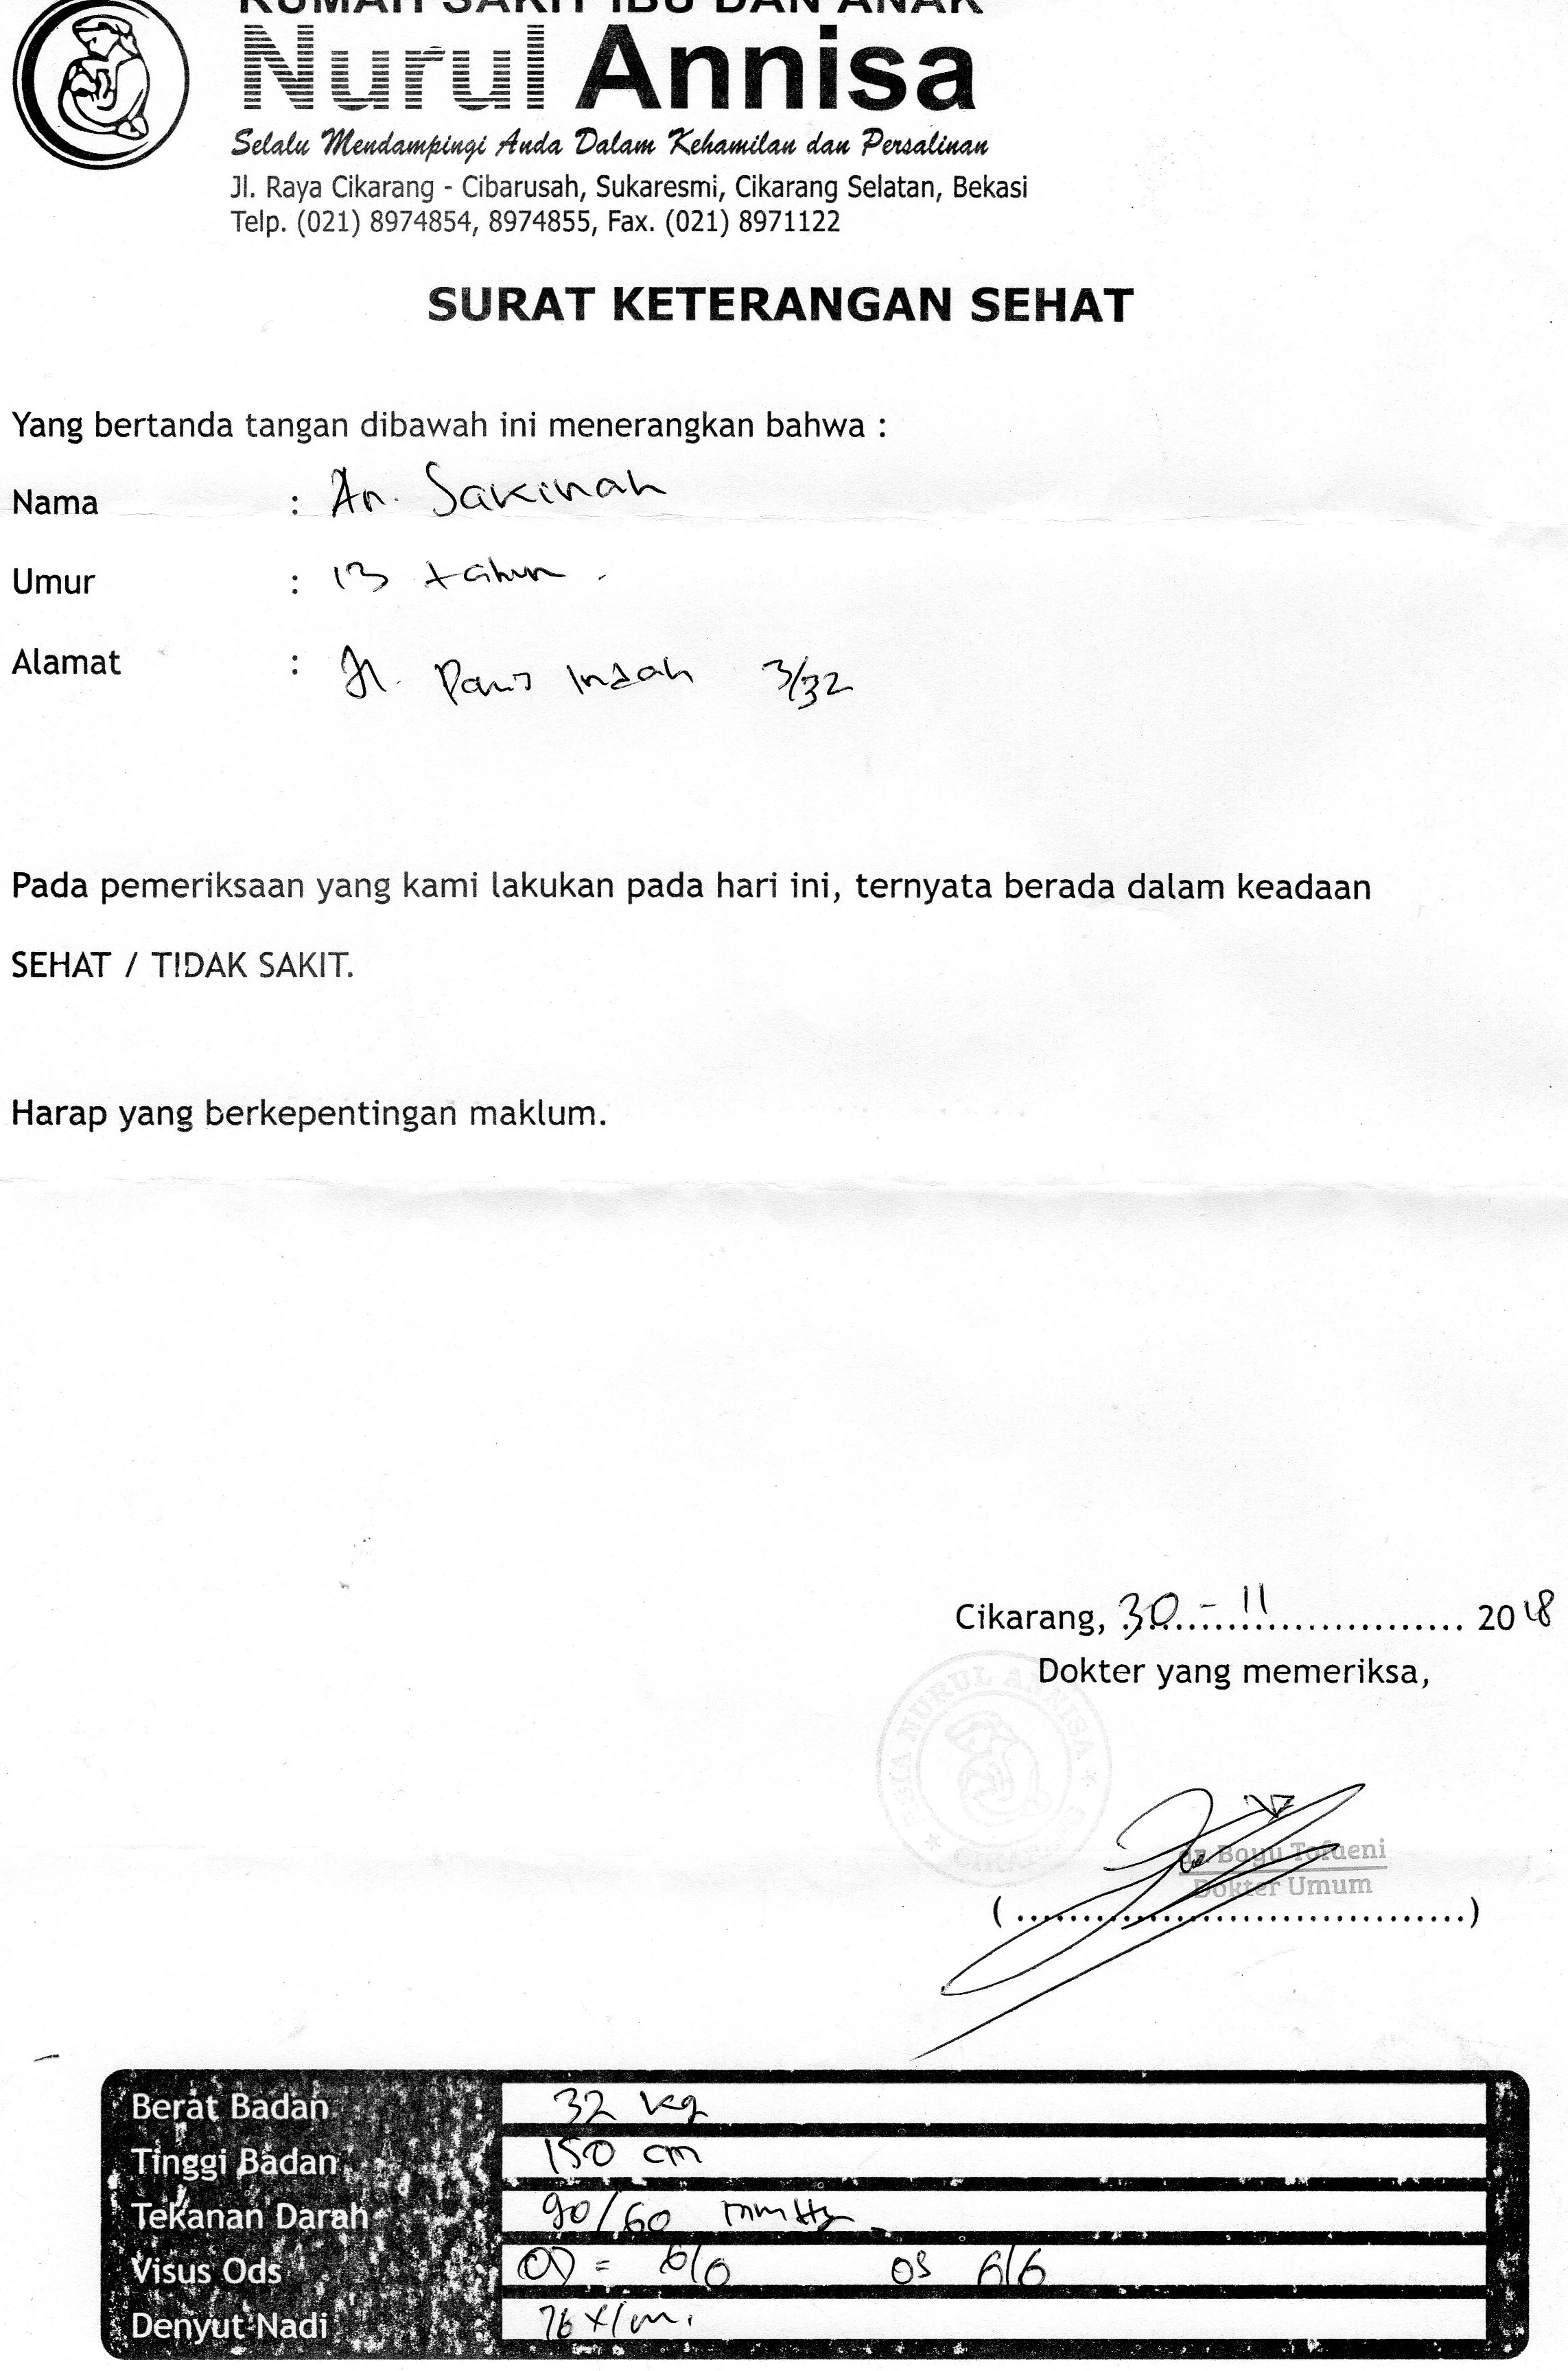 RUMAH SAKIT IBU DAN ANAK
Nurul Annisa
Selalu Mendampingi Anda Dalam Kehamilan dan Persalinan
Jl. Raya Cikarang - Cibarusah, Sukaresmi, Cikarang Selatan, Bekasi
Telp. (021) 8974854, 8974855, Fax. (021) 8971122
SURAT KETERANGAN SEHAT
Yang bertanda tangan dibawah ini menerangkan bahwa :
Nama : An. Sakinah
Umur : 13 tahun
Alamat : Jl. Indah 3/32
Pada pemeriksaan yang kami lakukan pada hari ini, ternyata berada dalam keadaan
SEHAT / TIDAK SAKIT.
Harap yang berkepentingan maklum.
Cikarang, 30 - 11 2018
Dokter yang memeriksa,
RSIA NURUL ANNISA
dr. Bayu
Dokter Umum
(....................................)
Berat Badan : 32 kg
Tinggi Badan : 150 cm
Tekanan Darah : 90/60 mmHg
Visus Ods : OD = 6/6 OS 6/6
Denyut Nadi : 76 x/m.